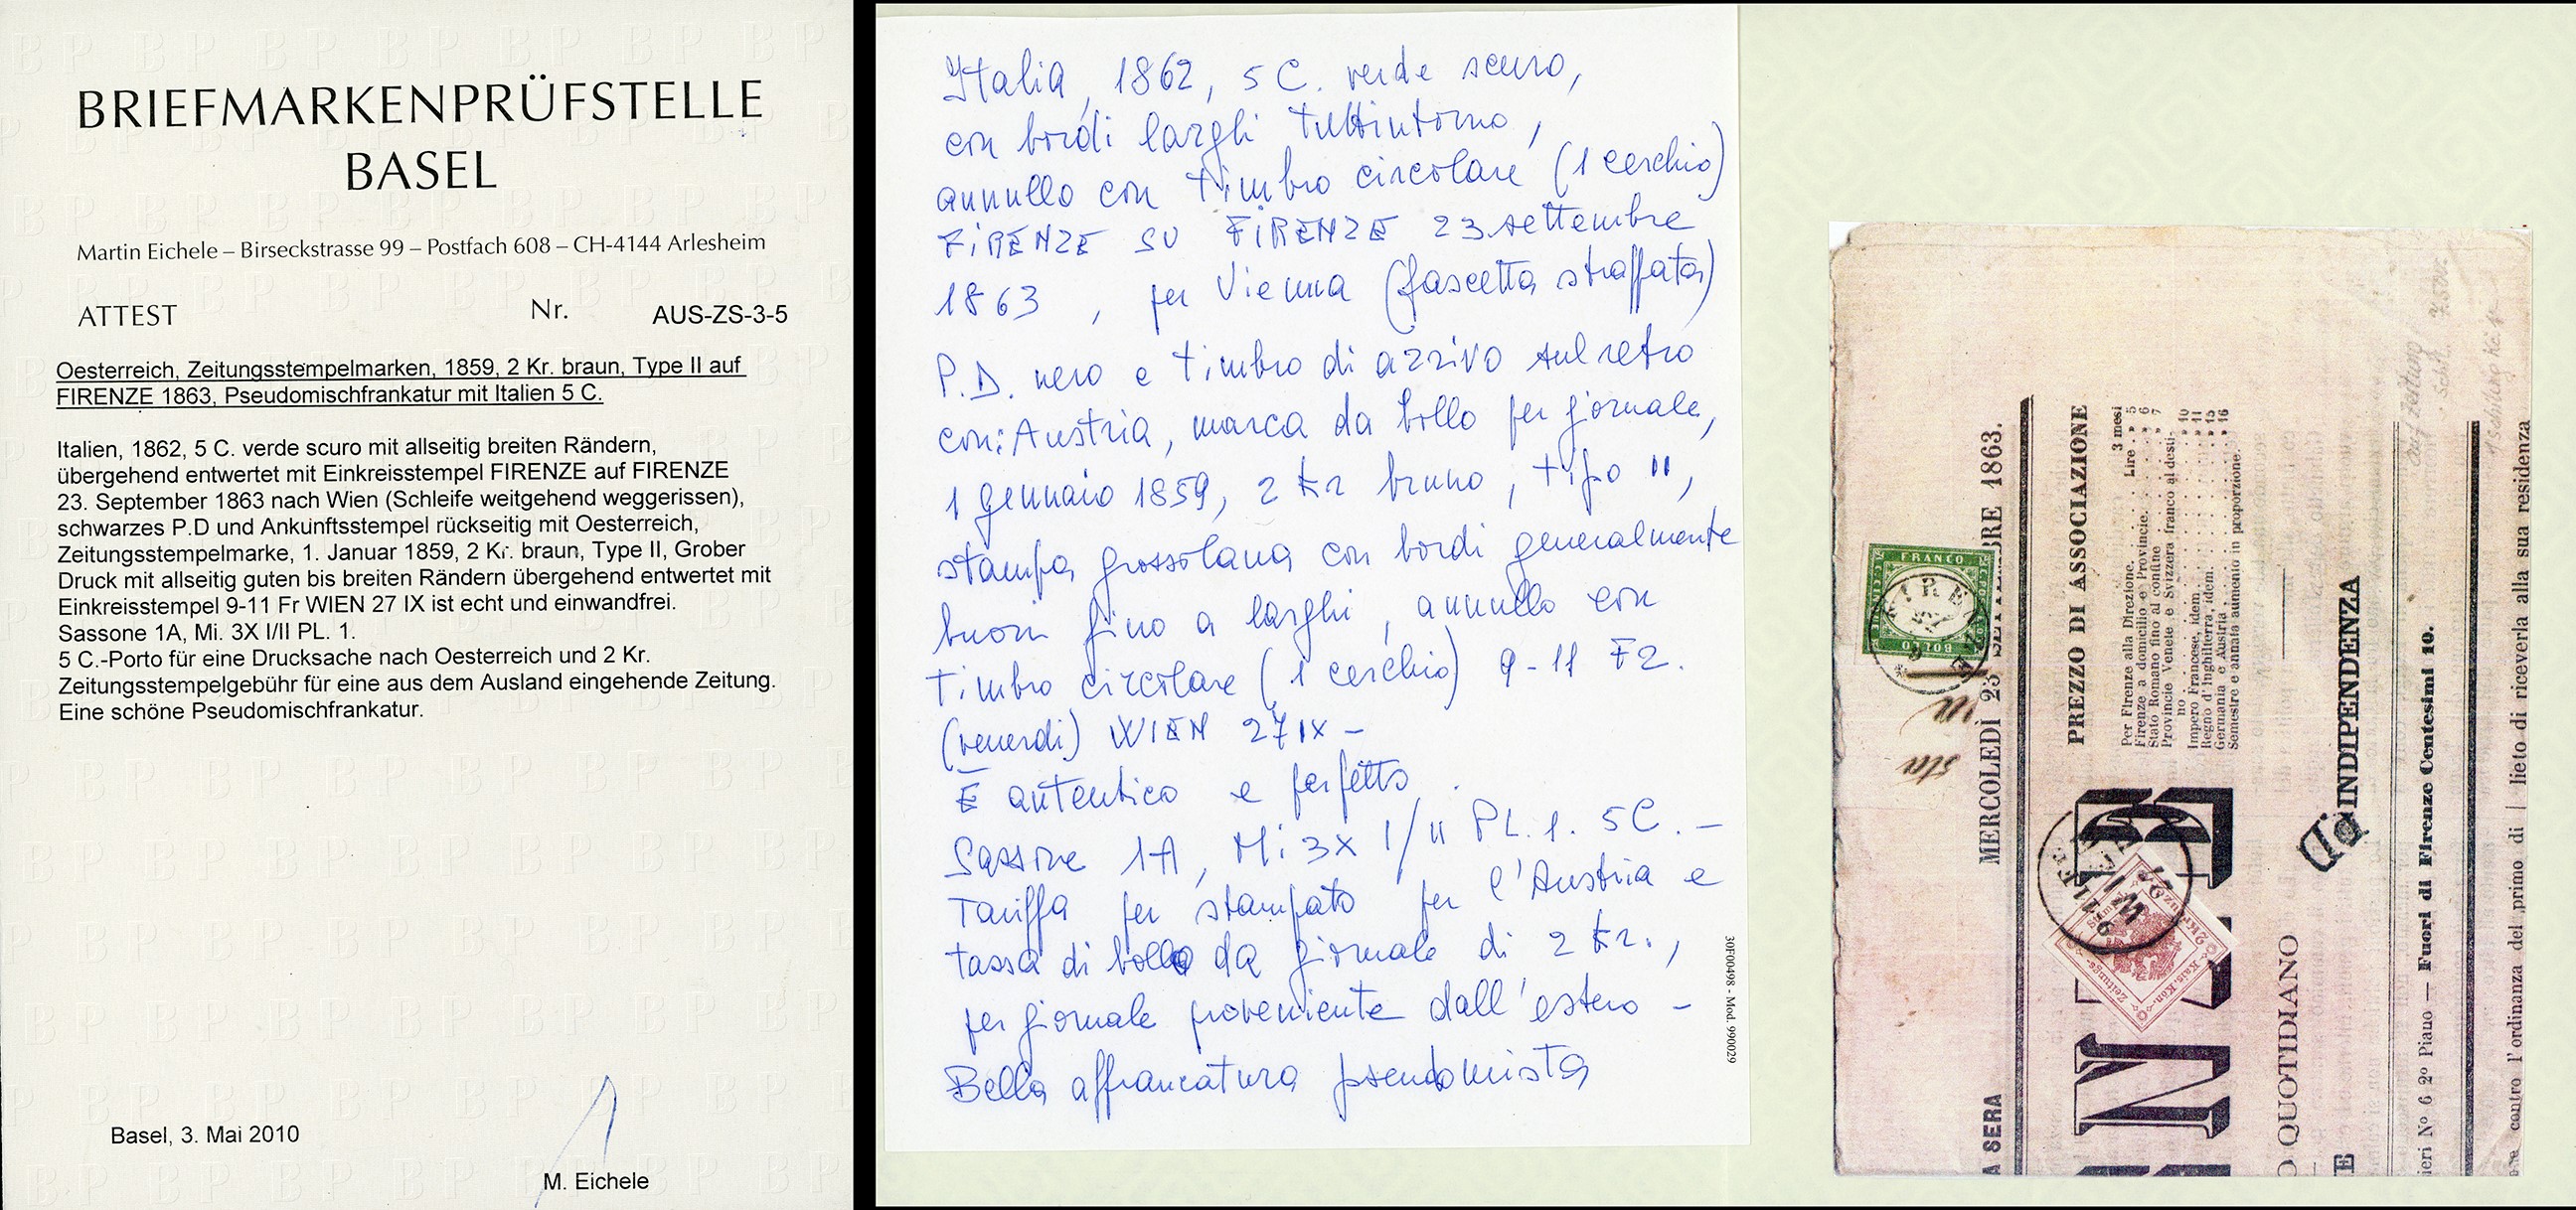 BRIEFMARKENPRÜFSTELLE
BASEL
Martin Eichele – Birseckstrasse 99 – Postfach 608 – CH-4144 Arlesheim
ATTEST Nr. AUS-ZS-3-5
Oesterreich, Zeitungsstempelmarken, 1859, 2 Kr. braun, Type II auf
FIRENZE 1863, Pseudomischfrankatur mit Italien 5 C.
Italien, 1862, 5 C. verde scuro mit allseitig breiten Rändern,
übergehend entwertet mit Einkreisstempel FIRENZE auf FIRENZE
23. September 1863 nach Wien (Schleife weitgehend weggerissen),
schwarzes P.D und Ankunftsstempel rückseitig mit Oesterreich,
Zeitungsstempelmarke, 1. Januar 1859, 2 Kr. braun, Type II, Grober
Druck mit allseitig guten bis breiten Rändern übergehend entwertet mit
Einkreisstempel 9-11 Fr WIEN 27 IX ist echt und einwandfrei.
Sassone 1A, Mi. 3X I/II PL. 1.
5 C.-Porto für eine Drucksache nach Oesterreich und 2 Kr.
Zeitungsstempelgebühr für eine aus dem Ausland eingehende Zeitung.
Eine schöne Pseudomischfrankatur.
Basel, 3. Mai 2010
M. Eichele
Italia, 1862, 5 C. verde scuro,
con bordi larghi tuttintorno,
annullo con timbro circolare (1 cerchio)
FIRENZE SU FIRENZE 23 settembre
1863, per Vienna (fascetta strappata)
P.D. nero e timbro di arrivo sul retro
con: Austria, marca da bollo per giornale,
1 gennaio 1859, 2 Kr bruno, tipo II,
stampa grossolana con bordi generalmente
buoni fino a larghi, annullo con
timbro circolare (1 cerchio) 9-11 F2.
(venerdi) WIEN 27 IX –
È autentico e perfetto.
Sassone 1A, Mi 3X I/II PL. 1. 5C. –
Tariffa per stampato per l'Austria e
tassa di bollo da giornale di 2 Kr.,
per giornale proveniente dall'estero –
Bella affrancatura pseudomista
30F00498 - Mod. 990029
FRANCO
BOLLO
A SERA MERCOLEDÌ 23 SETTEMBRE 1863.
PREZZO DI ASSOCIAZIONE
3 mesi
Per Firenze alla Direzione. Lire » 5
Firenze a domicilio e Provincie. » 6
Stato Romano fino al confine » 7
Provincie Venete e Svizzera franco al desti-
no » 10
Impero Francese, idem » 11
Regno d'Inghilterra, idem. » 15
Germania e Austria » 16
Semestre e annata aumento in proporzione.
WIEN
Zeitungs-
2 Kreuzer
O QUOTIDIANO
E INDIPENDENZA
PD
ieri Nº 6 2º Piano — Fuori di Firenze Centesimi 10.
contro l'ordinanza del primo di lieto di riceverla alla sua residenza
auf Zeitung